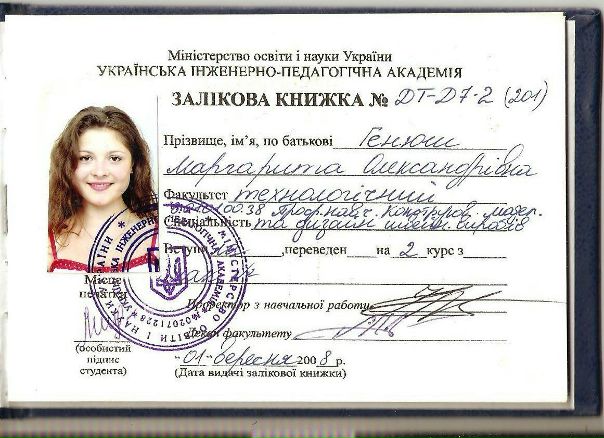 Міністерство освіти і науки України
УКРАЇНСЬКА ІНЖЕНЕРНО-ПЕДАГОГІЧНА АКАДЕМІЯ
ЗАЛІКОВА КНИЖКА № ДТ-Д7-2 (201)
Прізвище, ім'я, по батькові Генюш
Маргарита Олександрівна
Факультет технологічний
6.010100.38 Проф. навч. Конструюв. модел.
Спеціальність та дизайн швейн. виробів
Вступ , переведен на 2 курс з
Місце
печатки
Проректор з навчальної роботи
Декан факультету
(особистий
підпис
студента)
01 вересня 2008 р.
(Дата видачі залікової книжки)